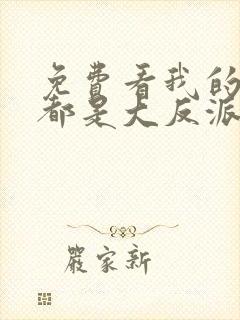 免费看我的
都是大反派
嚴家新